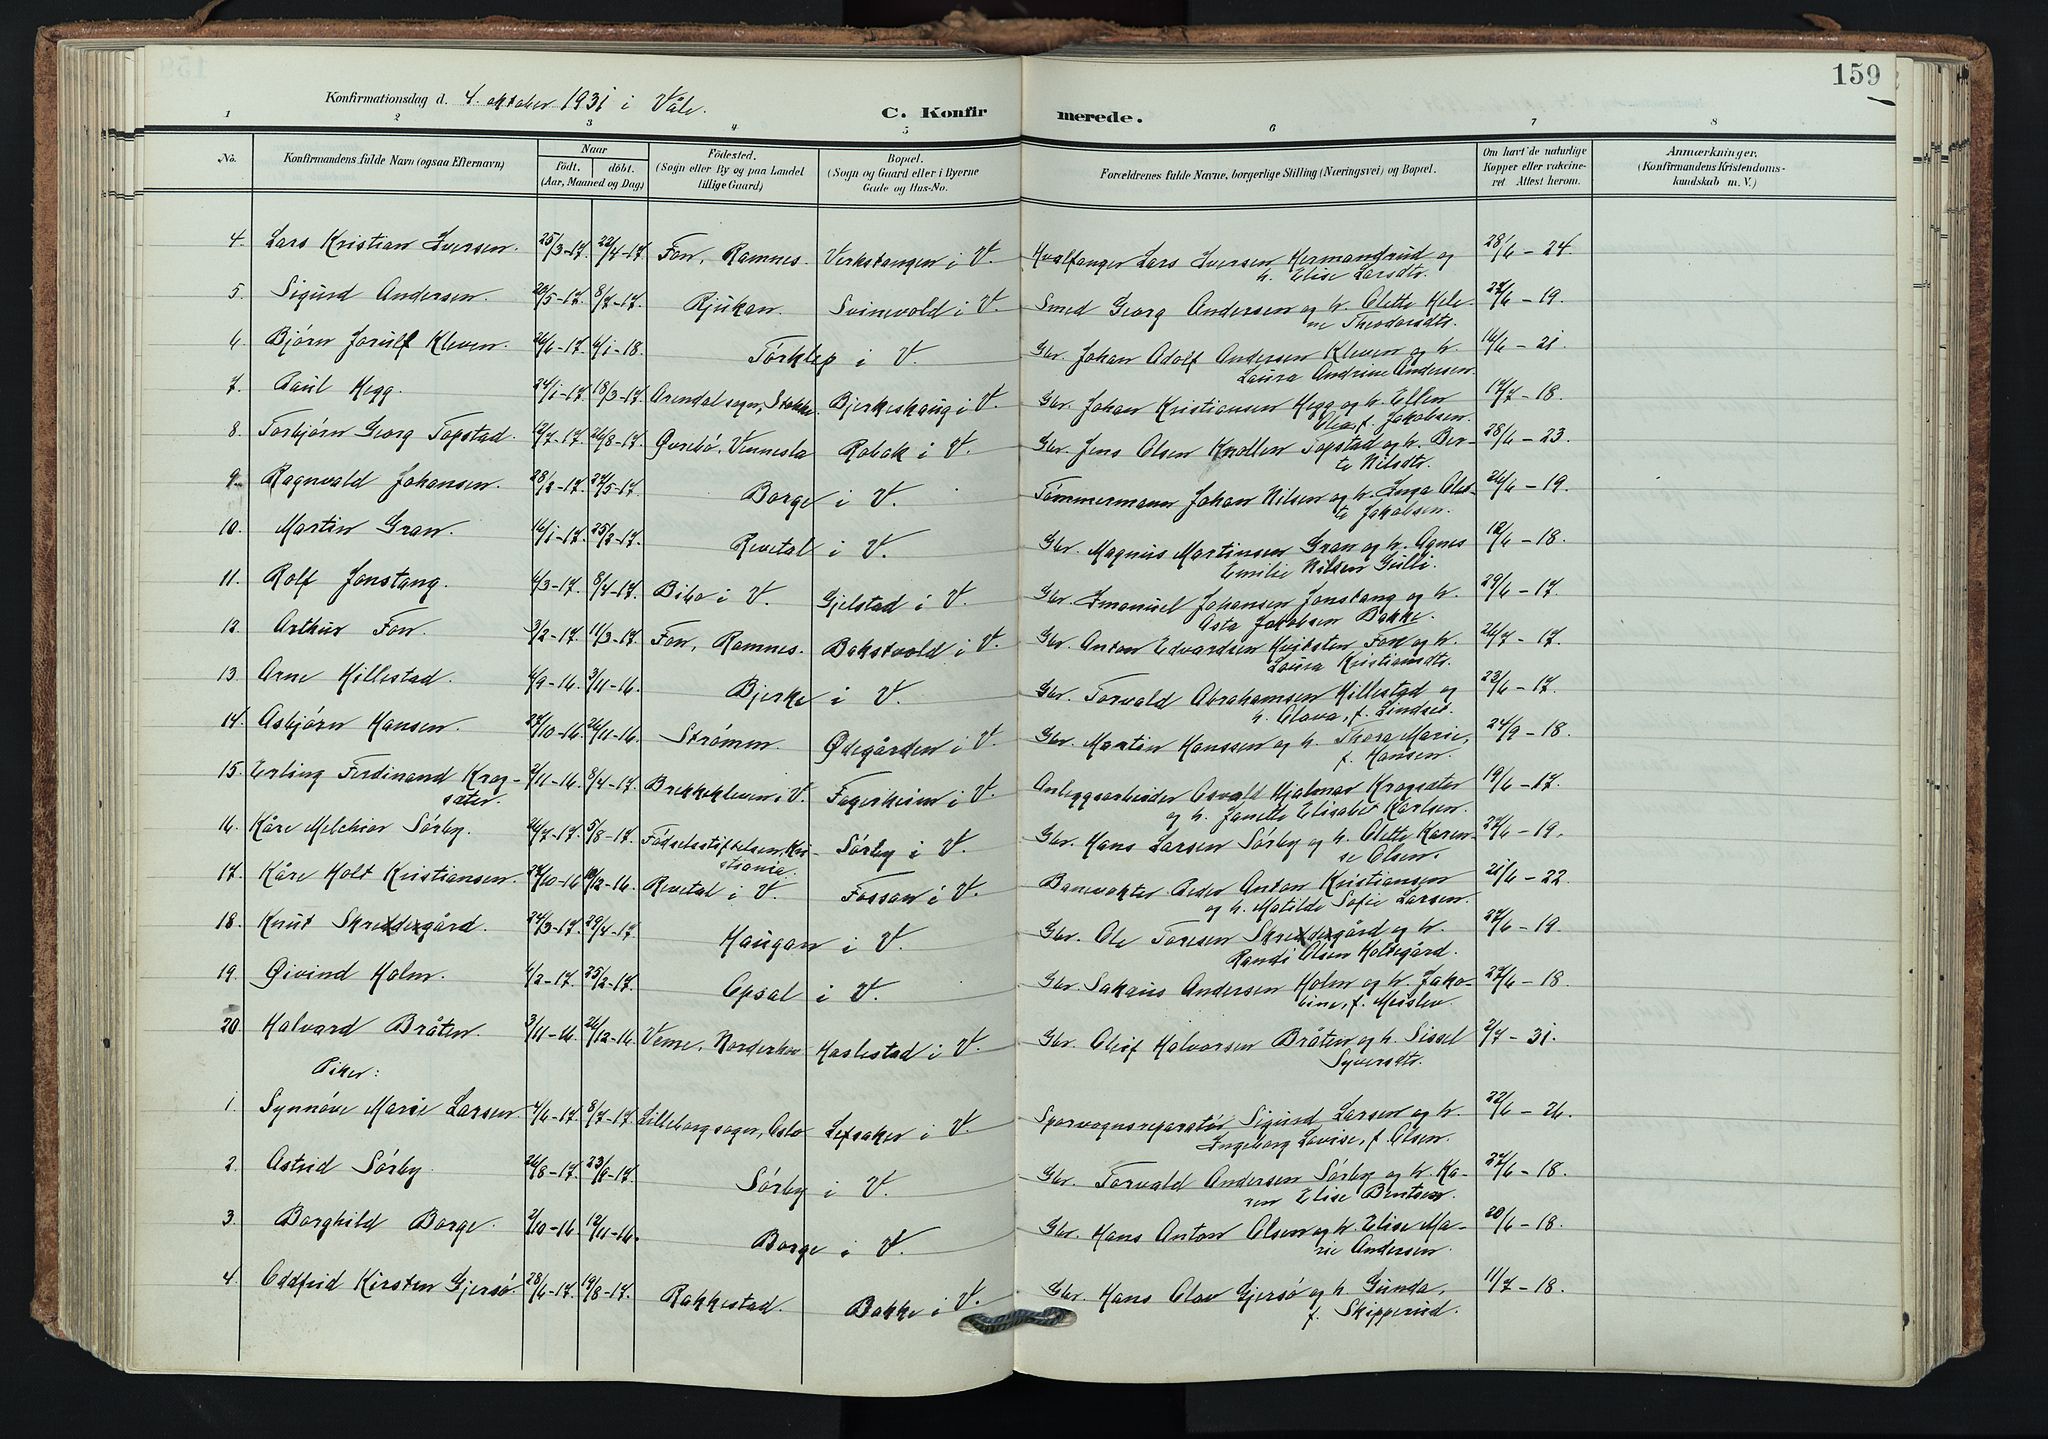 159
Konfirmationsdag d. 4. oktober 1931 i Våle.
C. Konfirmerede.
1 2 3 4 5 6 7 8
No. Konfirmandens fulde Navn (ogsaa Efternavn) Naar født. døbt. (Aar, Maaned og Dag) Fødested. (Sogn eller By og paa Landet tillige Gaard) Bopæl. (Sogn og Gaard eller i Byerne Gade og Hus-No. Forældrenes fulde Navne, borgerlige Stilling (Næringsvei) og Bopæl. Om havt de naturlige Kopper eller vakcineret Attest herom. Anmærkninger. (Konfirmandens Kristendomskundskab m. V.)
4. Lars Kristian Iversen. 25/3-17. 22/4-17. Fon, Ramnes. Verkstangen i V. Hvalfanger Lars Iversen Hermandrud og 28/6-24.
h. Elise Larsdtr.
5. Sigurd Andersen. 20/5-17. 8/7-17. Rjukan. Svinevold i V. Smed Georg Andersen og h. Olette Hele- 27/6-19.
ne Theodorsdtr.
6. Bjørn Jorulf Kleven. 26/6-17. 6/1-18. Tørklep i V. Gbr. Johan Adolf Andersen Kleven og h. 16/6-21.
Laura Andrine Andersen.
7. Paul Hegg. 24/1-17. 18/3-17. Arendal sogn, Stokke. Bjerkeshaug i V. Gbr. Johan Kristiansen Hegg og h. Ellen 17/7-18.
Olea, f. Jakobsen.
8. Torbjørn Georg Topstad. 12/7-17. 26/8-17. Øvrebø, Vennesla Robak i V. Gbr. Jens Olsen Knollen Topstad og h. Ber- 28/6-23.
te Nilsdtr.
9. Ragnvald Johansen. 28/2-17. 27/5-17 Borge i V. Tømmermann Johan Nilsen og h. Inga Olet- 26/6-19.
te Jakobsen.
10. Martin Gran. 16/1-17. 25/2-17. Revetal i V. Gbr. Magnus Martinsen Gran og h. Agnes 12/6-18.
Emilie Nilsen Gulli.
11. Rolf Jonstang. 4/3-17. 8/4-17. Bibo i V. Gjelstad i V. Gbr. Imanuel Johansen Jonstang og h. 29/6-17.
Asta Jakobsen Bakke.
12. Arthur Fon. 3/2-17. 11/3-17. Fon, Ramnes. Bakstvold i V. Gbr. Anton Edvardsen Kvisten Fon og h. 26/7-17.
Laura Kristiansdtr.
13. Arne Hillestad. 4/9-16. 5/11-16. Bjerke i V. Gbr. Torvald Abrahamsen Hillestad og 23/6-17.
h. Olava, f. Lindsei.
14. Asbjørn Hansen. 24/10-16. 26/11-16. Strømm. Ødegården i V. Gbr. Martin Hanssen og h. Thora Marie, 24/9-18.
f. Hansen.
15. Erling Ferdinand Krag- 2/11-16. 8/4-17. Brekkekleven i V. Fagerheim i V. Anleggsarbeider Osvald Hjalmar Kragsæter 19/6-17.
sæter. og h. Janette Elisabet Karlsen.
16. Kåre Melchior Sørby. 26/7-17. 5/8-17. Fødselsstiftelsen, Kri- Sørby i V. Gbr. Hans Larsen Sørby og h. Olette Karen- 27/6-19.
stiania. se Olsen.
17. Kåre Holt Kristiansen. 24/10-16 10/12-16. Revetal i V. Fossan i V. Banevokter Peder Anton Kristiansen 21/6-22.
og h. Matilde Sofie Larsen.
18. Knut Skreddergård. 24/3-17. 29/4-17. Haugan i V. Gbr. Ole Toresen Skreddergård og h. 27/6-19.
Randi Olsen Holtegård.
19. Øivind Holm. 4/2-17. 25/2-17. Opsal i V. Gbr. Sakaus Andersen Holm og h. Jako- 27/6-18.
bine, f. Meislev.
20. Halvard Bråten. 3/11-16. 26/12-16. Veme, Norderhov Haslestad i V. Gbr. Oleif Halvorsen Bråten og h. Sissel 2/7-31.
Syversdtr.
Piker:
1. Synnøve Marie Larsen. 4/6-17. 8/7-17. Lilleborg sogn, Oslo Lefsaker i V. Sporvognsreparatør Sigurd Larsen og h. 22/6-26.
Ingeborg Lovise, f. Olsen.
2. Astrid Sørby. 26/8-17. 23/9-17. Sørby i V. Gbr. Torvald Andersen Sørby og h. Ka- 27/6-18.
ren Elise Bentsen.
3. Borghild Borge. 2/10-16. 12/11-16. Borge i V. Gbr. Hans Anton Olsen og h. Elise Ma- 20/6-18.
rie Andersen.
4. Oddfrid Kirsten Gjersø. 28/6-17. 19/8-17. Rakkestad. Bakke i V. Gbr. Hans Olav Gjersø og h. Gunda, 11/7-18.
f. Skipperud.